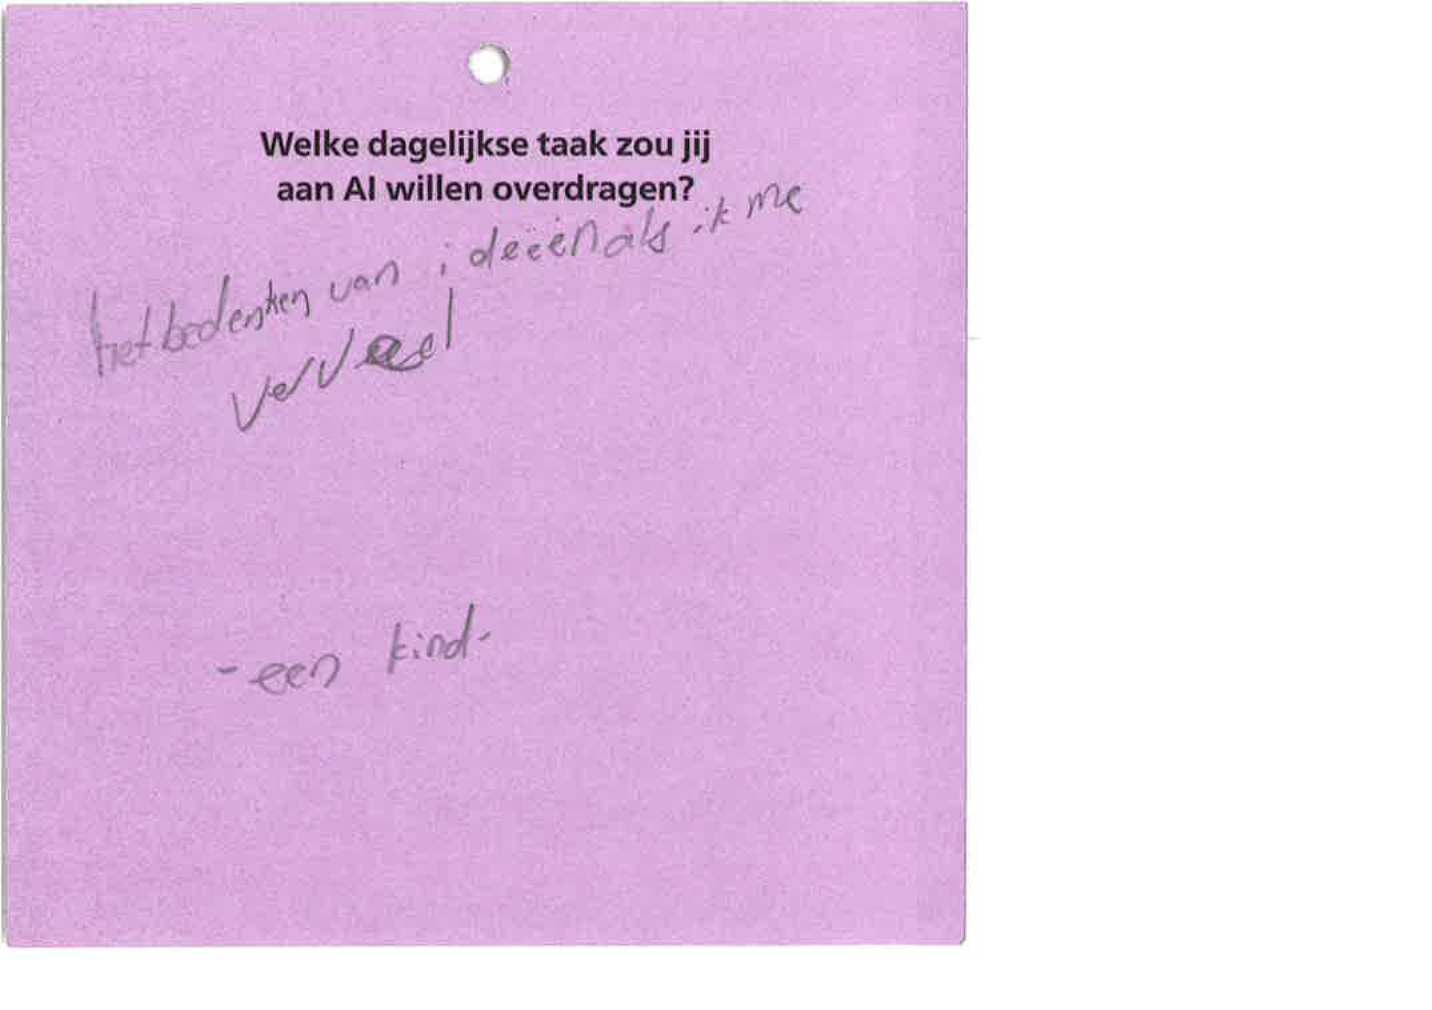 Welke dagelijkse taak zou jij
aan AI willen overdragen?
het bedenken van ideeën als ik me
verveel
- een kind-